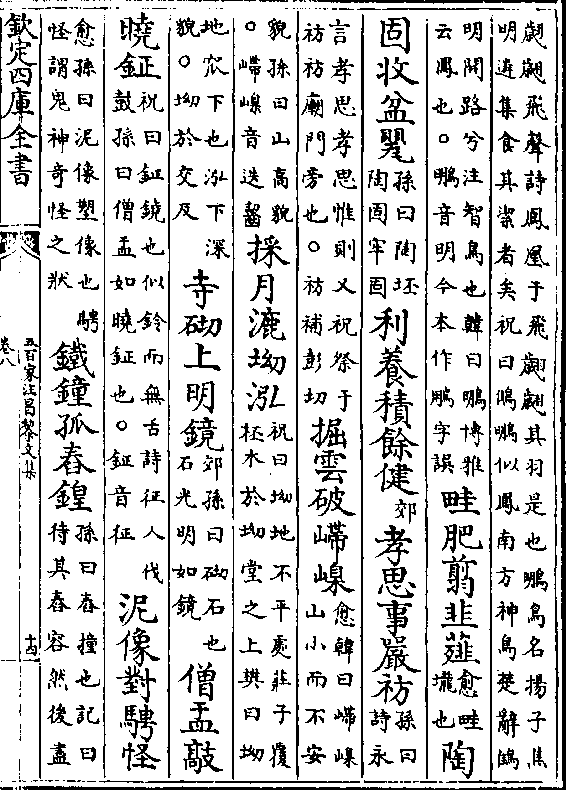 翽翽飛聲詩鳳凰于飛翽翽其羽是也䳟鳥名揚子焦
明遊集食其潔者矣祝曰鷦䳟似鳳南方神鳥楚辭鷦
明開路兮注智鳥也韓曰䳟博雅
云鳳也。䳟音明今本作鵬字誤
畦肥翦韭薤
愈畦
壠也
陶
固收盆甖
孫曰陶坯
陶固牢固
利養積餘健
郊
孝思事嚴祊
孫曰
詩永
言孝思孝思惟則又祝祭于
祊祊廟門旁也。祊補彭切
掘雲破嵽嵲
愈韓曰嵽嵲
山小而不安
貌孫曰山高貌
。嵽嵲音迭齧
採月漉坳泓
祝曰坳地不平處莊子覆
杯水於坳堂之上樊曰坳
地窊下也泓下深
貌。坳於交反
寺砌上明鏡
郊孫曰砌石也
石光明如鏡
僧盂敲
曉鉦
祝曰鉦鐃也似鈴而無舌詩征人伐
鼓孫曰僧盂如曉鉦也。鉦音征
泥像對騁怪
愈孫曰泥像塑像也騁
怪謂鬼神奇怪之狀
鐵鐘孤舂鍠
孫曰舂撞也記曰
待其舂容然後盡
欽定四庫全書
五百家注昌黎文集
卷八
十四